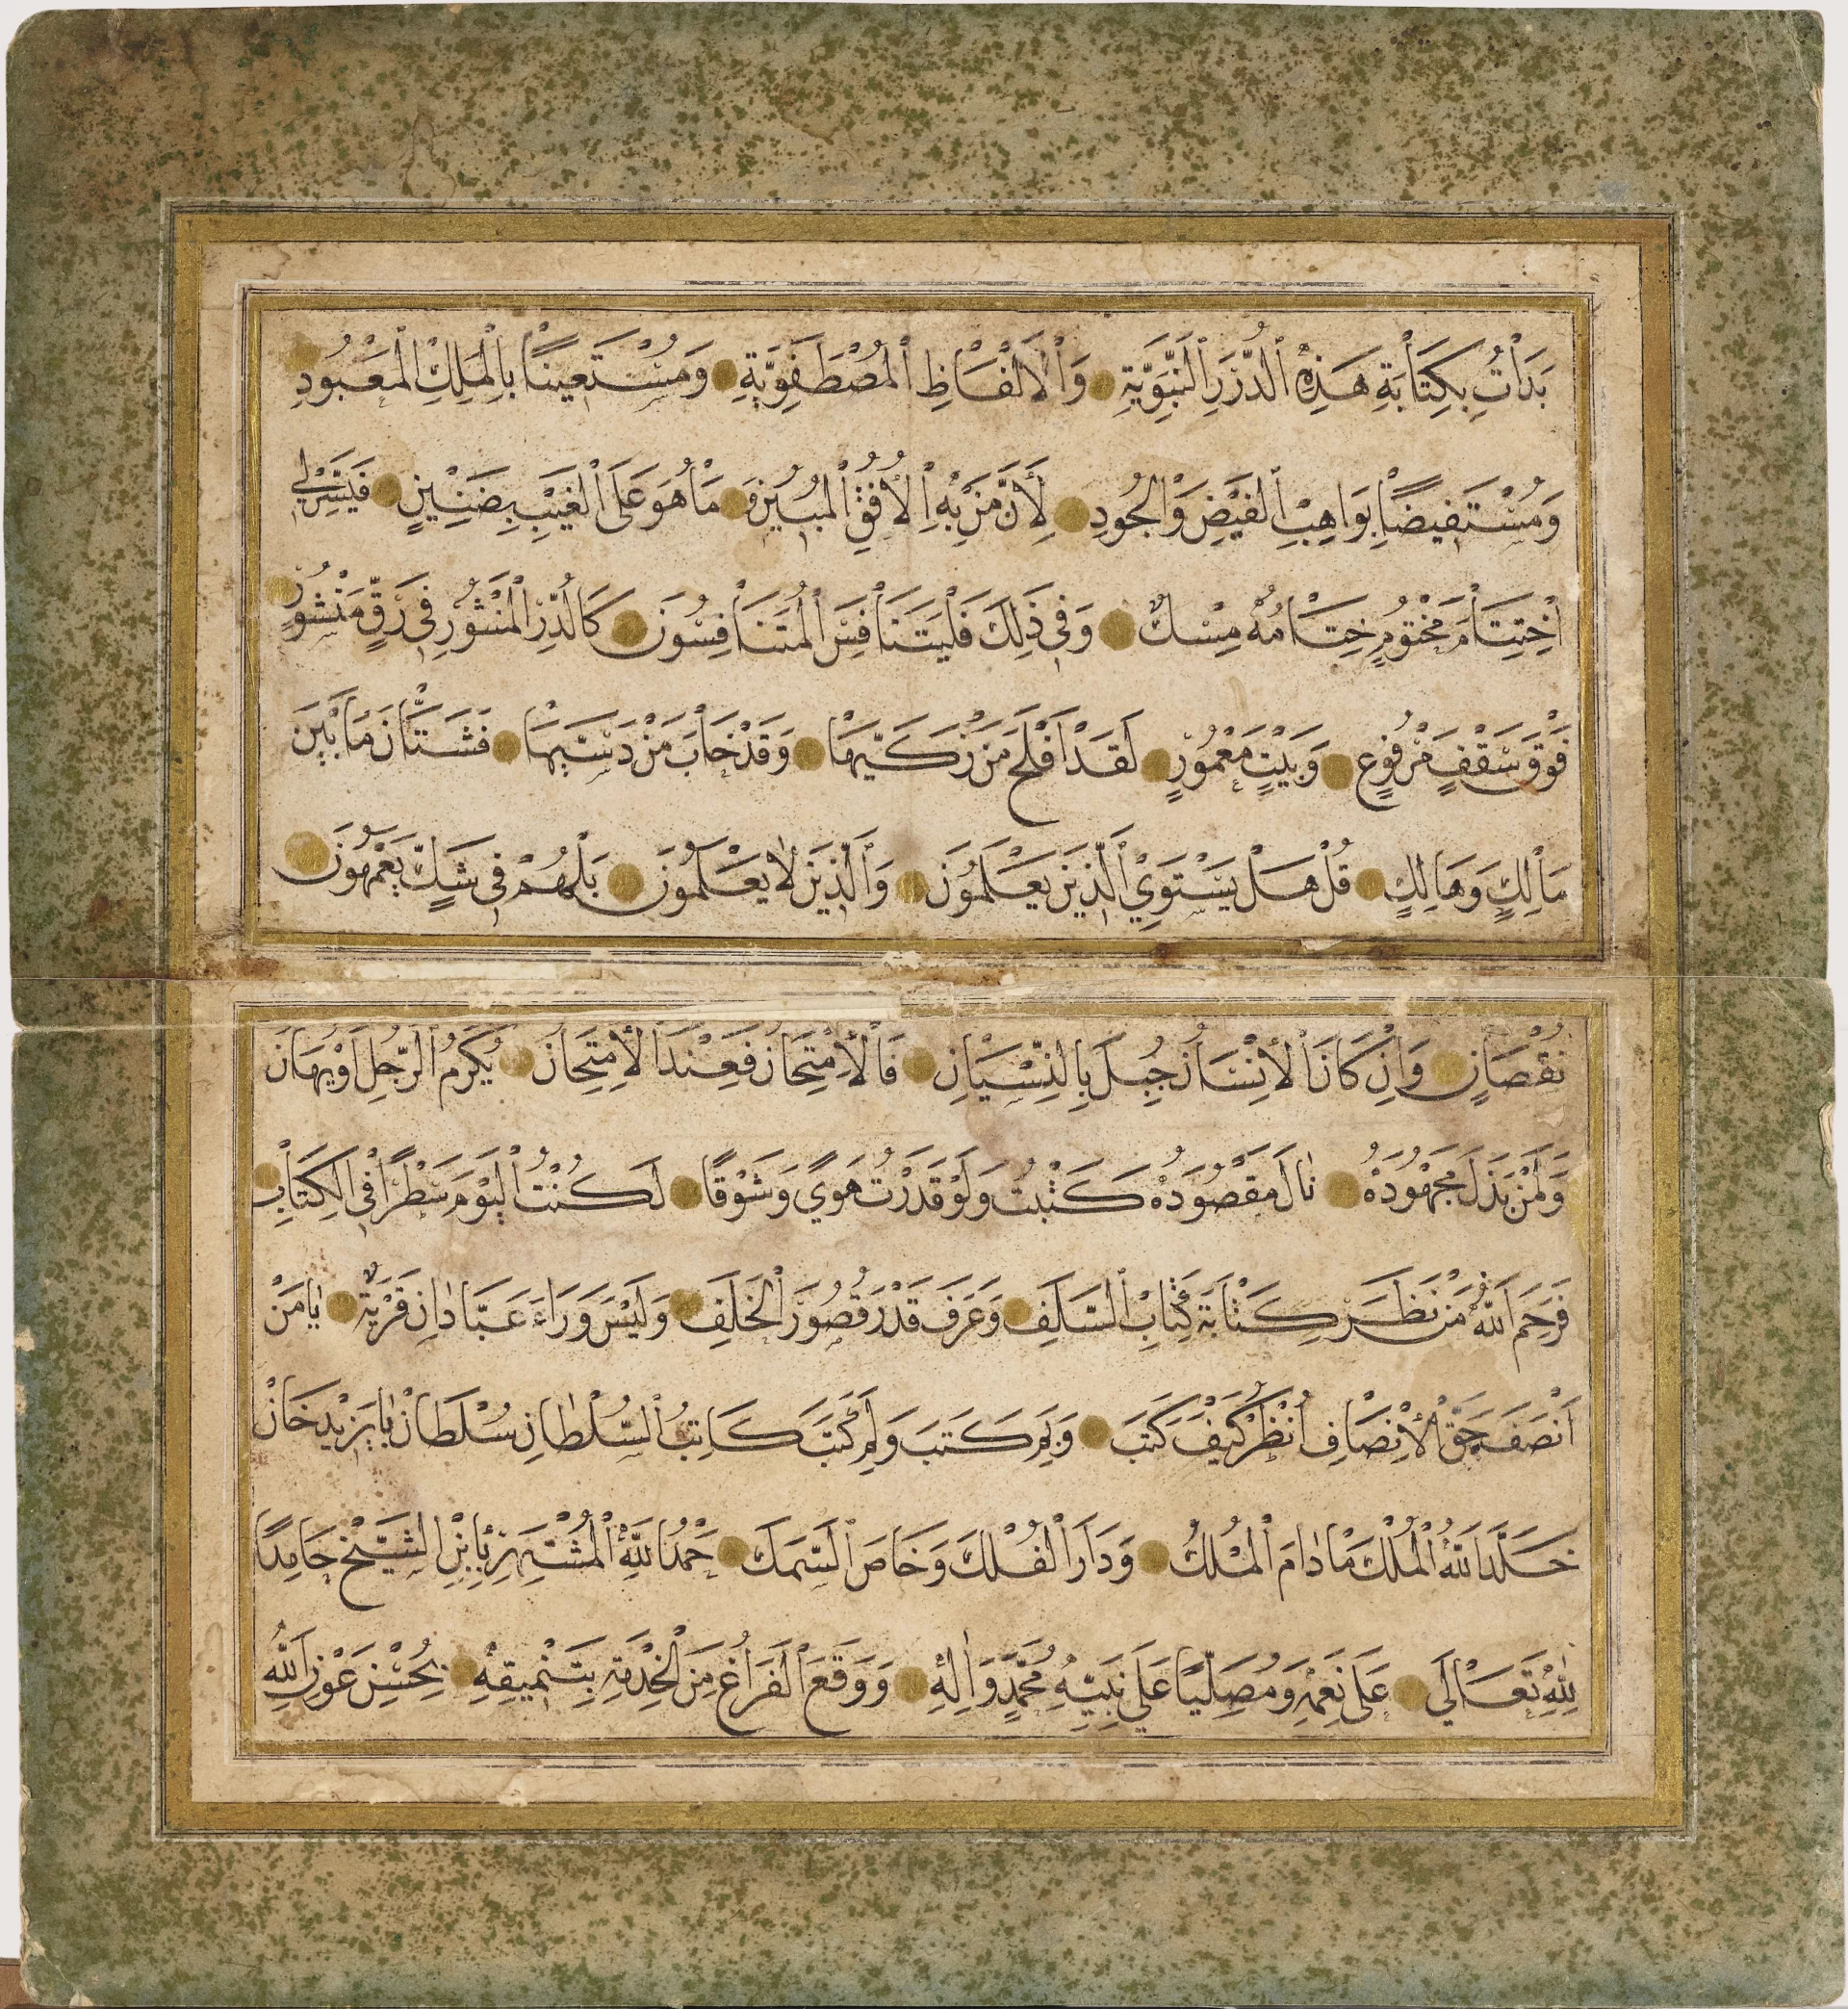 بَدَأْتُ بِكِتَابَةِ هَذِهِ ٱلدُّرَرِ ٱلنَّبَوِيَّةِ وَٱلْأَلْفَاظِ ٱلْمُصْطَفَوِيَّةِ وَمُسْتَعِينًا بِالْمَلِكِ الْمَعْبُودِ
وَمُسْتَفِيضًا بِوَاهِبِ ٱلْفَيْضِ وَالْجُودِ لِأَنَّ مَنْ بِهِ الْأُفُقِ ٱلْمُبِينِ وَمَا هُوَ عَلَى ٱلْغَيْبِ بِضَنِيْنٍ فَيَسِّرْ لِي
اخْتِتَامَ مَخْتُومٍ خِتَامُهُ مِسْكٌ وَفِي ذَلِكَ فَلْيَتَنَافَسِ ٱلْمُتَنَافِسُونَ كَالدُّرِّ الْمَنْثُورِ فِي رَقٍّ مَنْشُورٍ
فَوْقَ سَقْفٍ مَرْفُوعٍ وَبَيْتٍ مَعْمُورٍ لَقَدْ أَفْلَحَ مَنْ زَكَّيهَا وَقَدْ خَابَ مَنْ دَسَّيهَا فَشَتَّانَ مَا بَيْنَ
مَالِكٍ وَهَالِكٍ قُلْ هَلْ يَسْتَوِي ٱلَّذِينَ يَعْلَمُونَ وَٱلَّذِينَ لَا يَعْلَمُونَ بَلْ هُمْ فِي شَكٍّ يَعْمَهُونَ
نُقْصَانٍ وَإِنْ كَانَ ٱلْإِنْسَانُ جُبِلَ بِالنِّسْيَانِ فَالْأِمْتِحَانُ فَعِنْدَ الْاِمْتِحَانِ يُكْرَمُ الرَّجُلُ أَوْ يُهَانُ
وَلَمَنْ بَذَلَ مَجْهُودَهُ نَالَ مَقْصُودَهُ كَتَبْتُ وَلَوْ قَدَرْتُ هَوًي وَشَوْقًا لَكُنْتُ الْيَوْمَ سَطْرًا فِي الْكِتَابِ
فَرَحِمَ اللهُ مَنْ نَظَرَ كِتَابَةَ كُتَّابِ السَّلَفِ وَعَرَفَ قَدْرَ قُصُورَ الْخَلَفِ وَلَيْسَ وَرَاءَ عَبَّادَانِ قَرْيَةٌ يَا مَنْ
اَنْصَفَ حَقَّ الْأِنْصَافِ اُنْظُرْ كَيْفَ كَتَبَ وَبِمَ كَتَبَ وَلِمَ كَتَبَ كَاتِبُ السُّلْطَانِ سُلْطَانْ بَايَزِيدْ خَانْ
خَلَّدَ اللهُ الْمُلْكَ مَا دَامَ الْمُلْكُ وَدَارَ الْفُلْكَ وَخَاصَ السَّمَكَ حَمْدُ اللهِ الْمُشْتَهِرُ بِابْنِ الشَّيْخِ حَامِدًا
لِلّٰهِ تَعَالَي عَلَى نِعَمِهِ وَمُصَلِّيًا عَلَي نَبِيِّهِ مُحَمَّدٍ وَاٰلِهِ وَوَقَعَ الْفَرَاغُ مِنَ الْخِدْمَةِ بِتَنْمِيقِهِ بِحُسْنِ عَوْنِ اللهِ